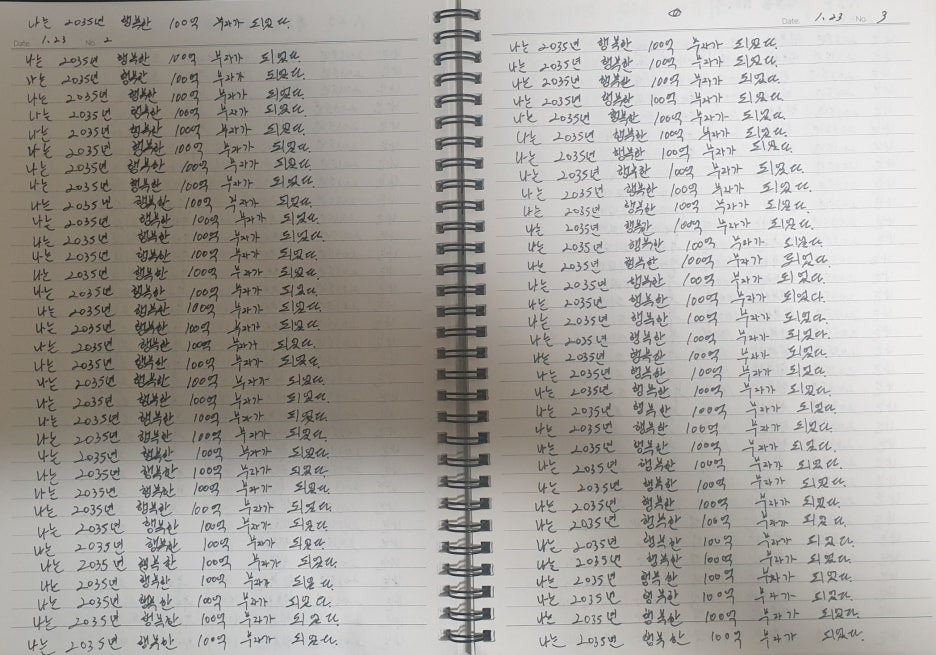 나는 2035년 행복한 100억 부자가 되었다.
Date 1.23 No 2
나는 2035년 행복한 100억 부자가 되었다.
나는 2035년 행복한 100억 부자가 되었다.
나는 2035년 행복한 100억 부자가 되었다.
나는 2035년 행복한 100억 부자가 되었다.
나는 2035년 행복한 100억 부자가 되었다.
나는 2035년 행복한 100억 부자가 되었다.
나는 2035년 행복한 100억 부자가 되었다.
나는 2035년 행복한 100억 부자가 되었다.
나는 2035년 행복한 100억 부자가 되었다.
나는 2035년 행복한 100억 부자가 되었다.
나는 2035년 행복한 100억 부자가 되었다.
나는 2035년 행복한 100억 부자가 되었다.
나는 2035년 행복한 100억 부자가 되었다.
나는 2035년 행복한 100억 부자가 되었다.
나는 2035년 행복한 100억 부자가 되었다.
나는 2035년 행복한 100억 부자가 되었다.
나는 2035년 행복한 100억 부자가 되었다.
나는 2035년 행복한 100억 부자가 되었다.
나는 2035년 행복한 100억 부자가 되었다.
나는 2035년 행복한 100억 부자가 되었다.
나는 2035년 행복한 100억 부자가 되었다.
나는 2035년 행복한 100억 부자가 되었다.
나는 2035년 행복한 100억 부자가 되었다.
나는 2035년 행복한 100억 부자가 되었다.
나는 2035년 행복한 100억 부자가 되었다.
나는 2035년 행복한 100억 부자가 되었다.
나는 2035년 행복한 100억 부자가 되었다.
나는 2035년 행복한 100억 부자가 되었다.
나는 2035년 행복한 100억 부자가 되었다.
나는 2035년 행복한 100억 부자가 되었다.
나는 2035년 행복한 100억 부자가 되었다.
나는 2035년 행복한 100억 부자가 되었다.
나는 2035년 행복한 100억 부자가 되었다.
Date 1.23 No 3
나는 2035년 행복한 100억 부자가 되었다.
나는 2035년 행복한 100억 부자가 되었다.
나는 2035년 행복한 100억 부자가 되었다.
나는 2035년 행복한 100억 부자가 되었다.
나는 2035년 행복한 100억 부자가 되었다.
나는 2035년 행복한 100억 부자가 되었다.
나는 2035년 행복한 100억 부자가 되었다.
나는 2035년 행복한 100억 부자가 되었다.
나는 2035년 행복한 100억 부자가 되었다.
나는 2035년 행복한 100억 부자가 되었다.
나는 2035년 행복한 100억 부자가 되었다.
나는 2035년 행복한 100억 부자가 되었다.
나는 2035년 행복한 100억 부자가 되었다.
나는 2035년 행복한 100억 부자가 되었다.
나는 2035년 행복한 100억 부자가 되었다.
나는 2035년 행복한 100억 부자가 되었다.
나는 2035년 행복한 100억 부자가 되었다.
나는 2035년 행복한 100억 부자가 되었다.
나는 2035년 행복한 100억 부자가 되었다.
나는 2035년 행복한 100억 부자가 되었다.
나는 2035년 행복한 100억 부자가 되었다.
나는 2035년 행복한 100억 부자가 되었다.
나는 2035년 행복한 100억 부자가 되었다.
나는 2035년 행복한 100억 부자가 되었다.
나는 2035년 행복한 100억 부자가 되었다.
나는 2035년 행복한 100억 부자가 되었다.
나는 2035년 행복한 100억 부자가 되었다.
나는 2035년 행복한 100억 부자가 되었다.
나는 2035년 행복한 100억 부자가 되었다.
나는 2035년 행복한 100억 부자가 되었다.
나는 2035년 행복한 100억 부자가 되었다.
나는 2035년 행복한 100억 부자가 되었다.
나는 2035년 행복한 100억 부자가 되었다.